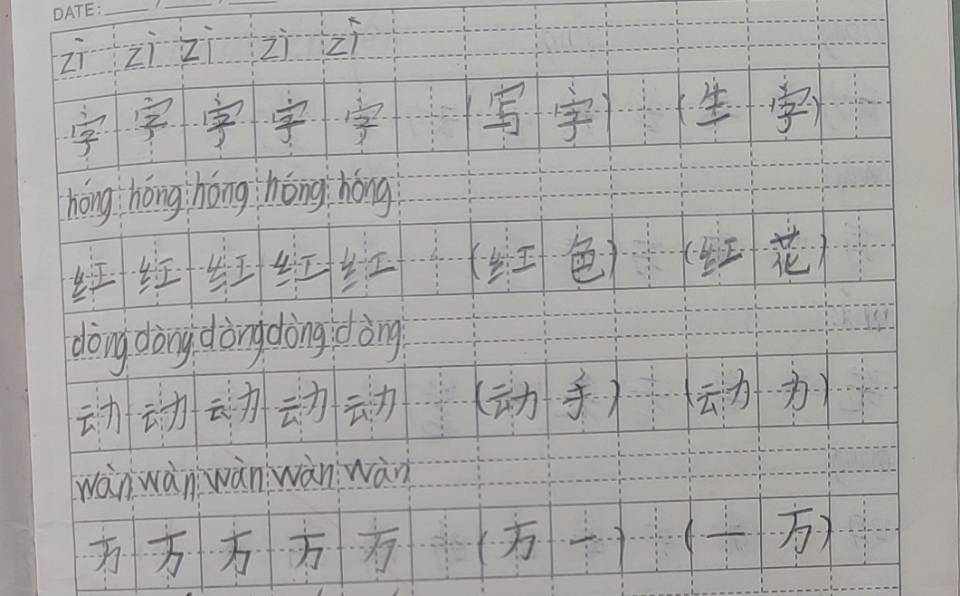 DATE:
zì zì zì zì zì
字 字 字 字 字 (写 字) (生 字)
hóng hóng hóng hóng hóng
红 红 红 红 红 (红 色) (红 花)
dòng dòng dòng dòng dòng
动 动 动 动 动 (动 手) (动 力)
wàn wàn wàn wàn wàn
万 万 万 万 万 (万 一) (一 万)